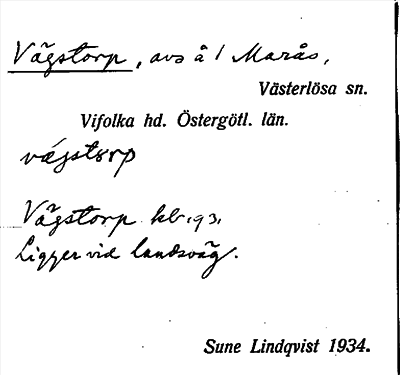 Vägstorp, avs å 1 Marås,
Västerlösa sn.
Vifolka hd. Östergötl. län.
vægstɔrp
Vägstorp kb. 93.
Ligger vid landsväg.
Sune Lindqvist 1934.